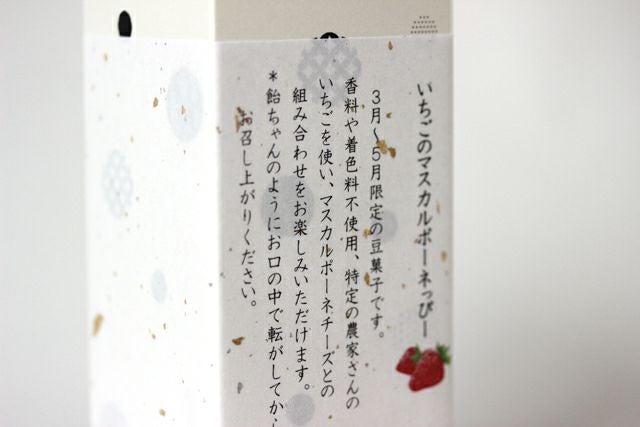 いちごのマスカルポーネっぴー
3月～5月限定の豆菓子です。
香料や着色料不使用、特定の農家さんの
いちごを使い、マスカルポーネチーズとの
組み合わせをお楽しみいただけます。
＊飴ちゃんのようにお口の中で転がしてから
お召し上がりください。